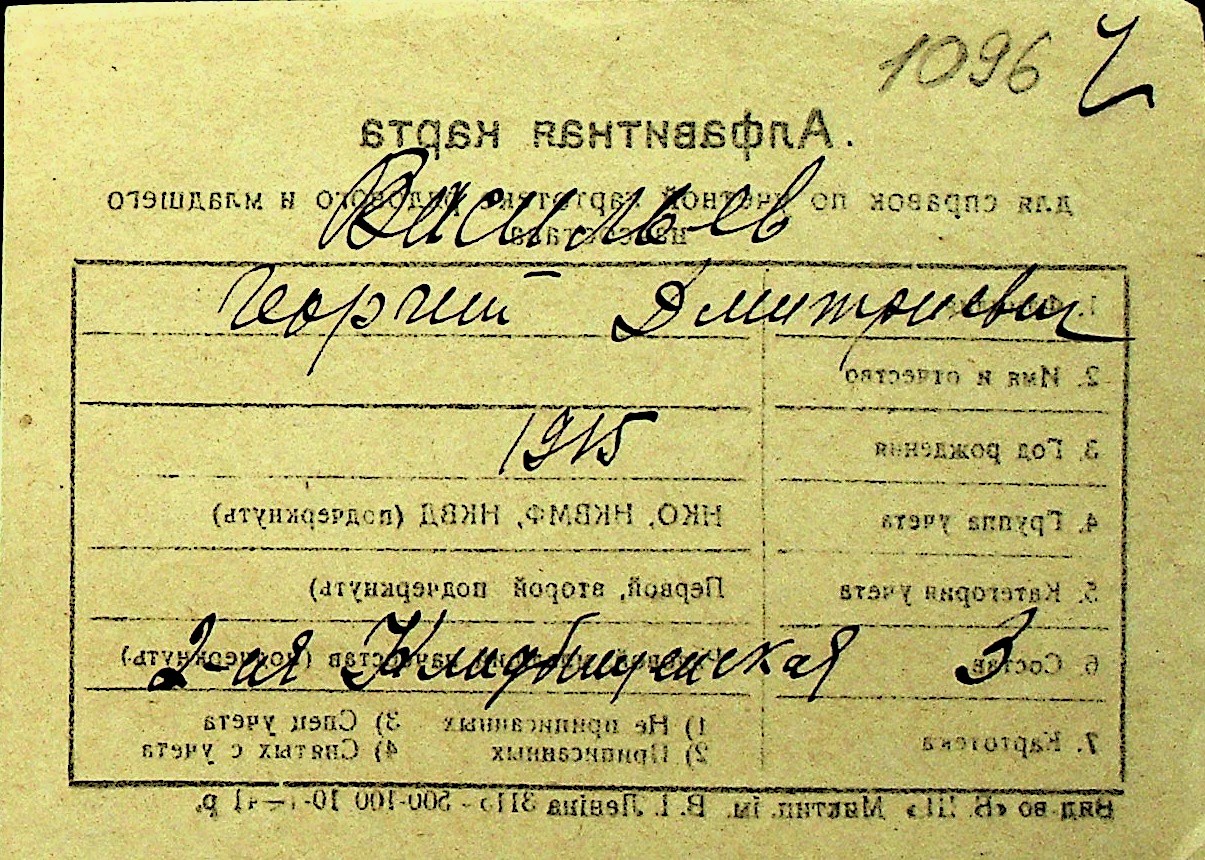 1096 Ч
Алфавитная карта
Васильев
для справок по учетной картотеке рядового и младшего
начсостава
Георгий Дмитриевич
1.
2. Имя и отчество
1915
3. Год рождения
4. Группа учета НКО, НКВМФ, НКВД (подчеркнуть)
5. Категория учета Первой, второй подчеркнуть)
2-ая Кладбищенская 3
6. Состав начсостав (подчеркнуть)
7. Картотека 1) Не приписанных 3) Спец учета
2) Приписанных 4) Снятых с учета
Вид-во Миктип. ім. В. І. Леніна 500-100 р.